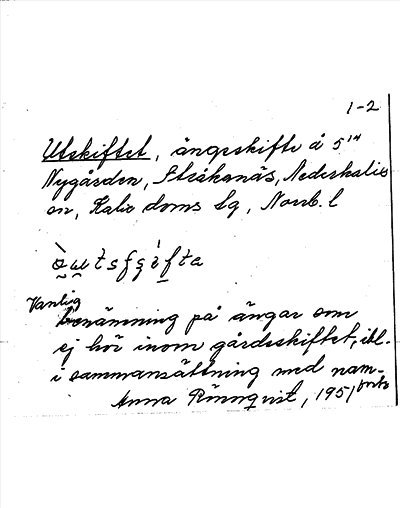 1-2
Utskiftet, ängsskifte å 5¹⁴
Nygården, Stråkanäs, Nederkalix
sn, Kalix doms lg, Norrb. l
Vanlig
benämning på ängar som
ej hör inom gårdsskiftet, ibl.
i sammansättning med namn-
Anna Rönnqvist, 1951